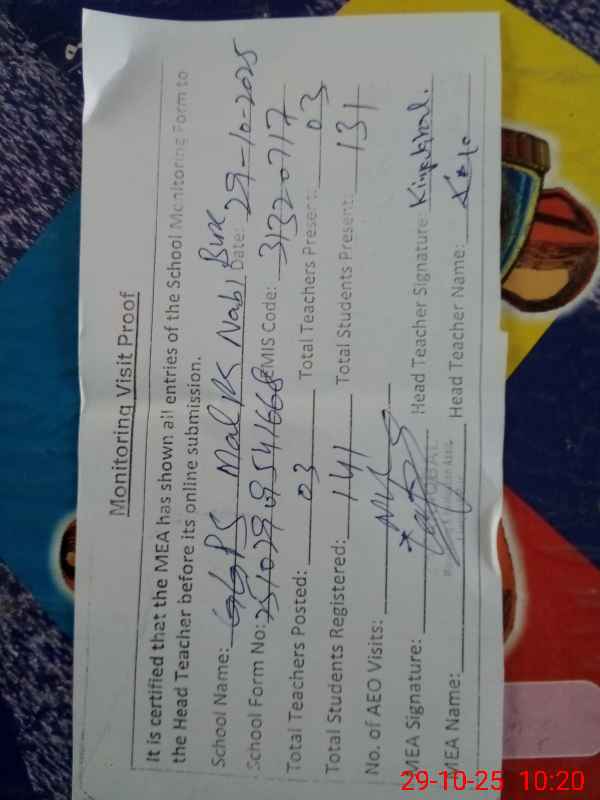 Monitoring Visit Proof
It is certified that the MEA has shown all entries of the School Monitoring Form to
the Head Teacher before its online submission.
School Name: GGPS Malik Nabi Bux
School Form No: EMIS Code: 31320717 Date: 29-10-2025
Total Teachers Posted: 03 Total Teachers Present: 03
Total Students Registered: 141 Total Students Present: 131
No. of AEO Visits: Nil
MEA Signature: Head Teacher Signature:
MEA Name: Head Teacher Name:
29-10-25 10:20